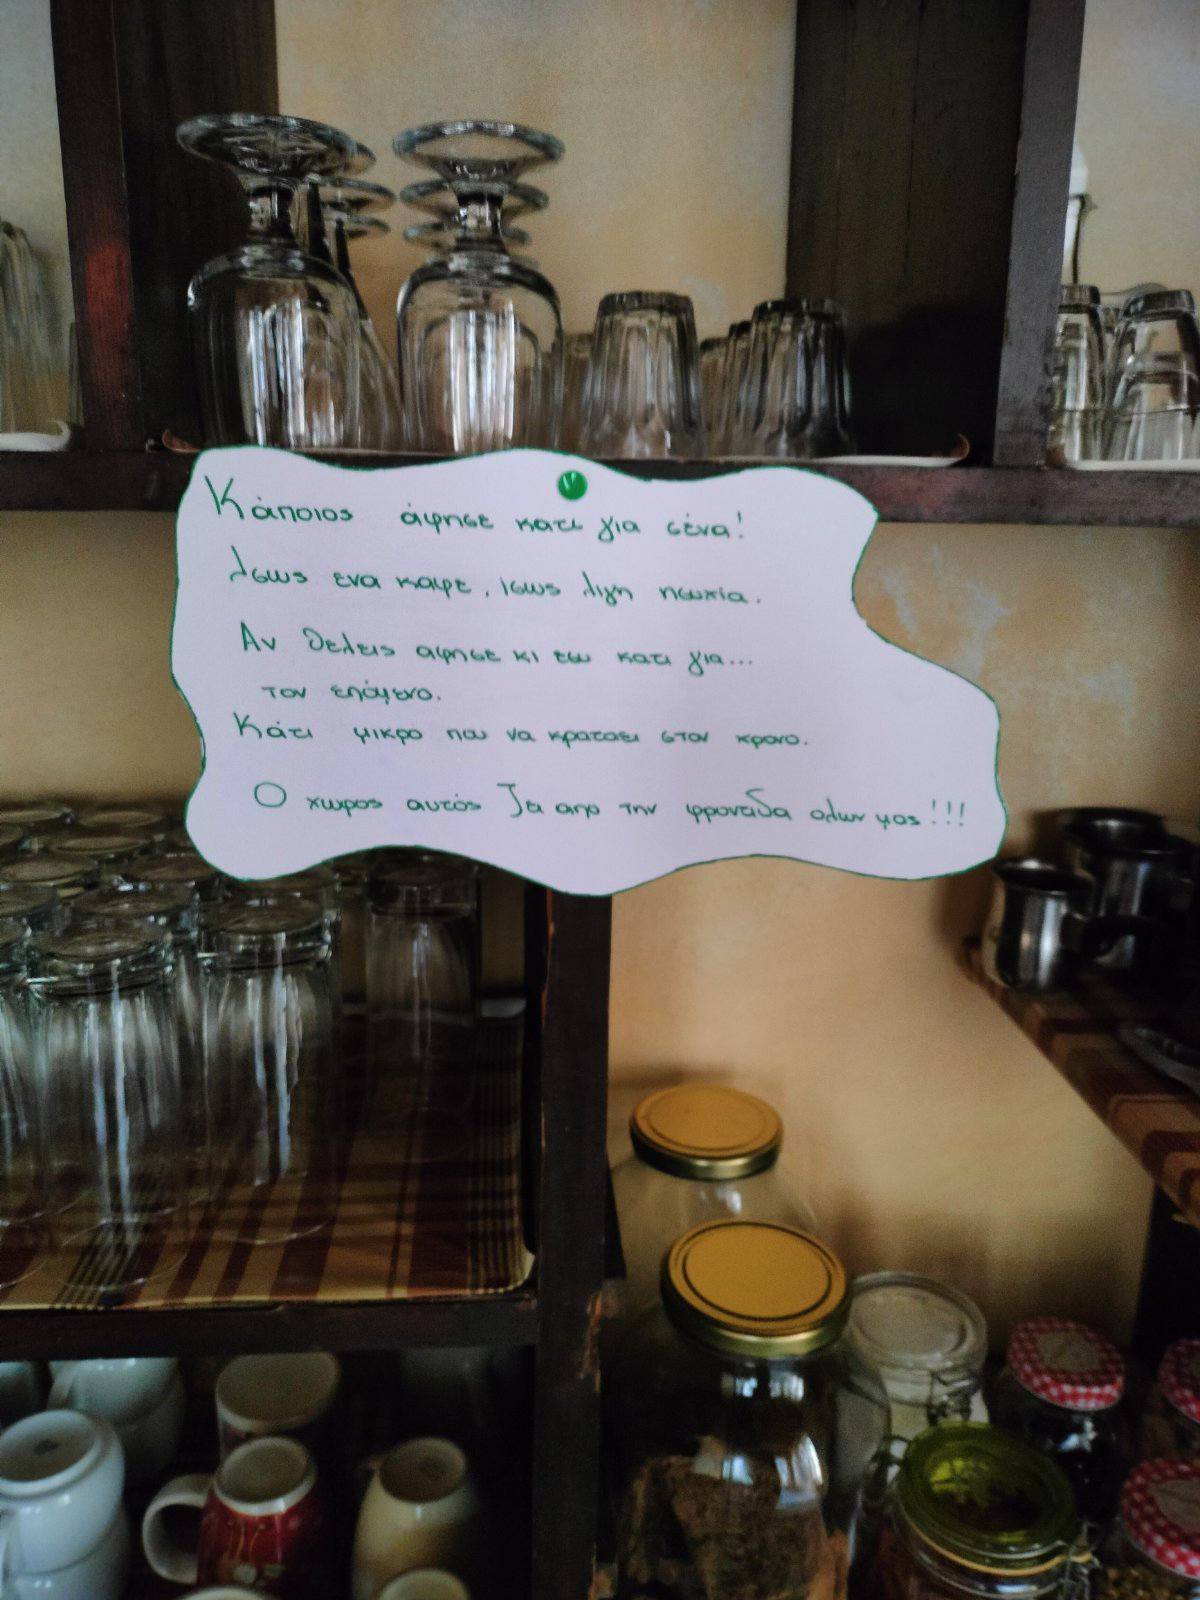 Κάποιος άφησε κατι για σένα!
Ισως ενα καφε, ίσως λιγη ησυχία.
Αν θελεις αφησε κι εσυ κατι για...
τον επόμενο.
Κάτι μικρο που να κραταει στον χρονο.
Ο χωρος αυτός ζει απο την φροντιδα ολων μας!!!